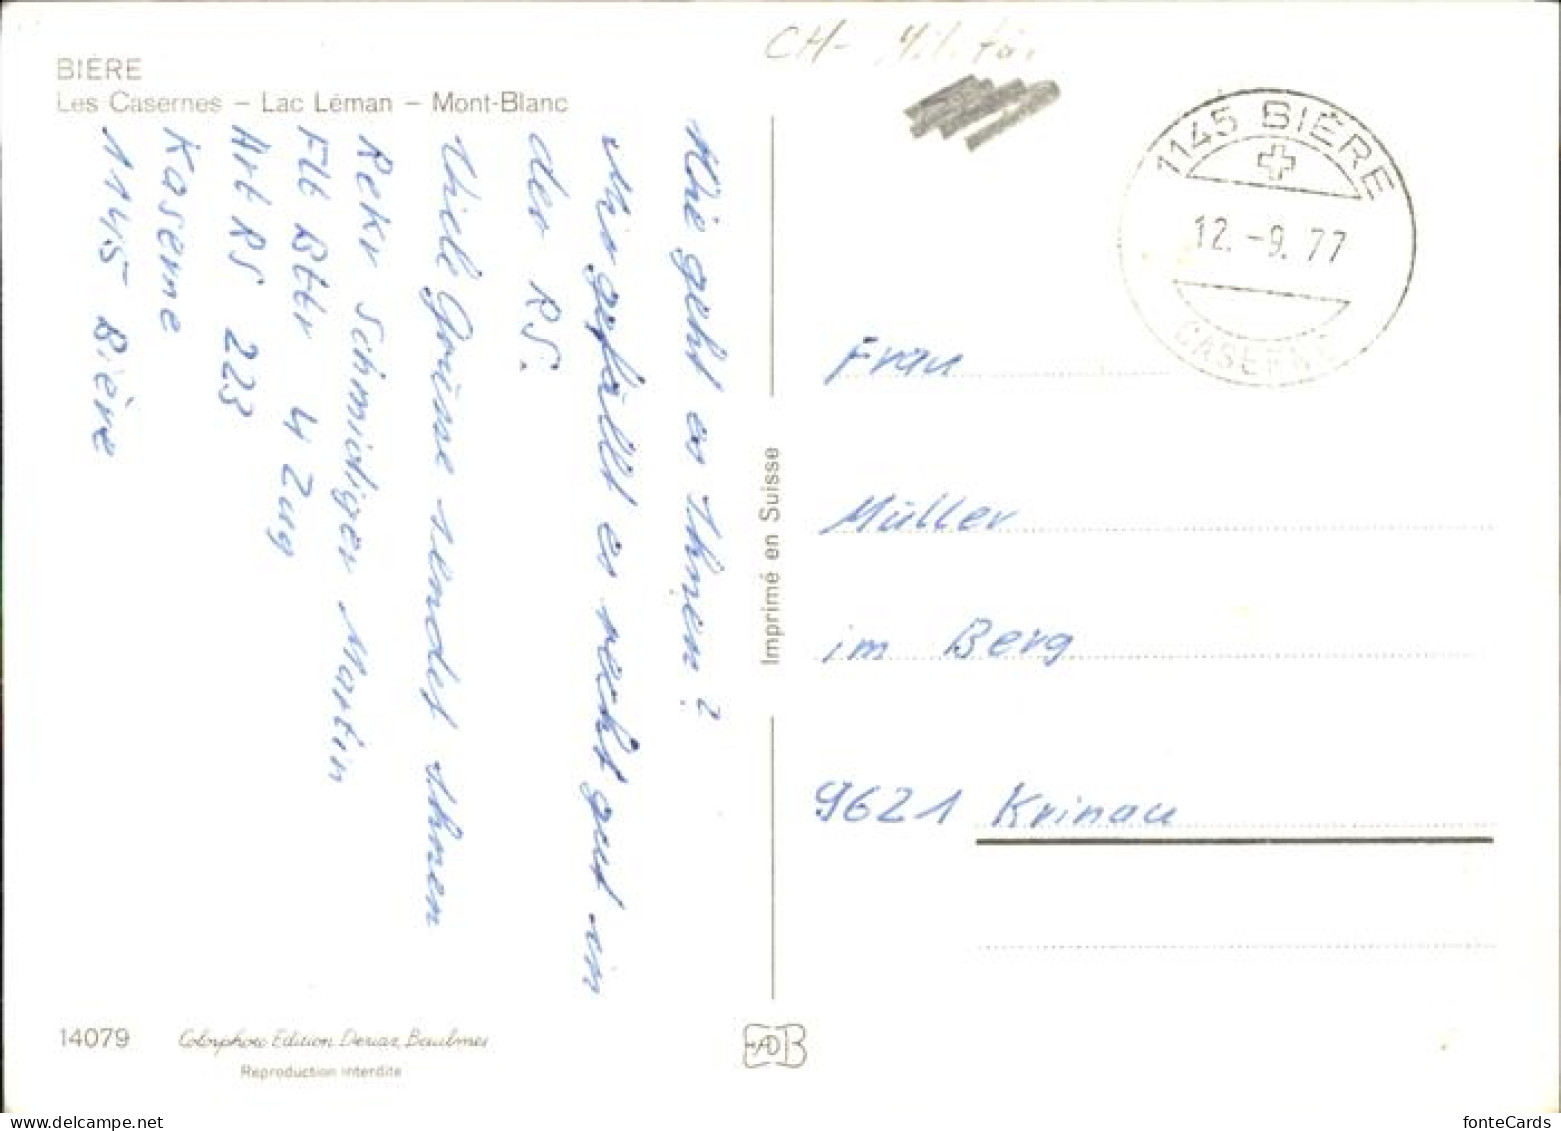 CH-Militär
BIÈRE
Les Casernes – Lac Léman – Mont-Blanc
1145 BIÈRE
12.-9.77
CASERNE
Wie geht es Ihnen?
Mir gefällt es recht gut in
der RS.
Viele Grüsse sendet Ihnen
Rekr Schmidiger Martin
Flt Bttr 4 Zug
Art RS 223
Kaserne
1145 Bière
Imprimé en Suisse
Frau
Müller
im Berg
9621 Krinau
14079
Colorphoto Edition Deriaz, Baulmes
Reproduction interdite
EAD B
fonteCards